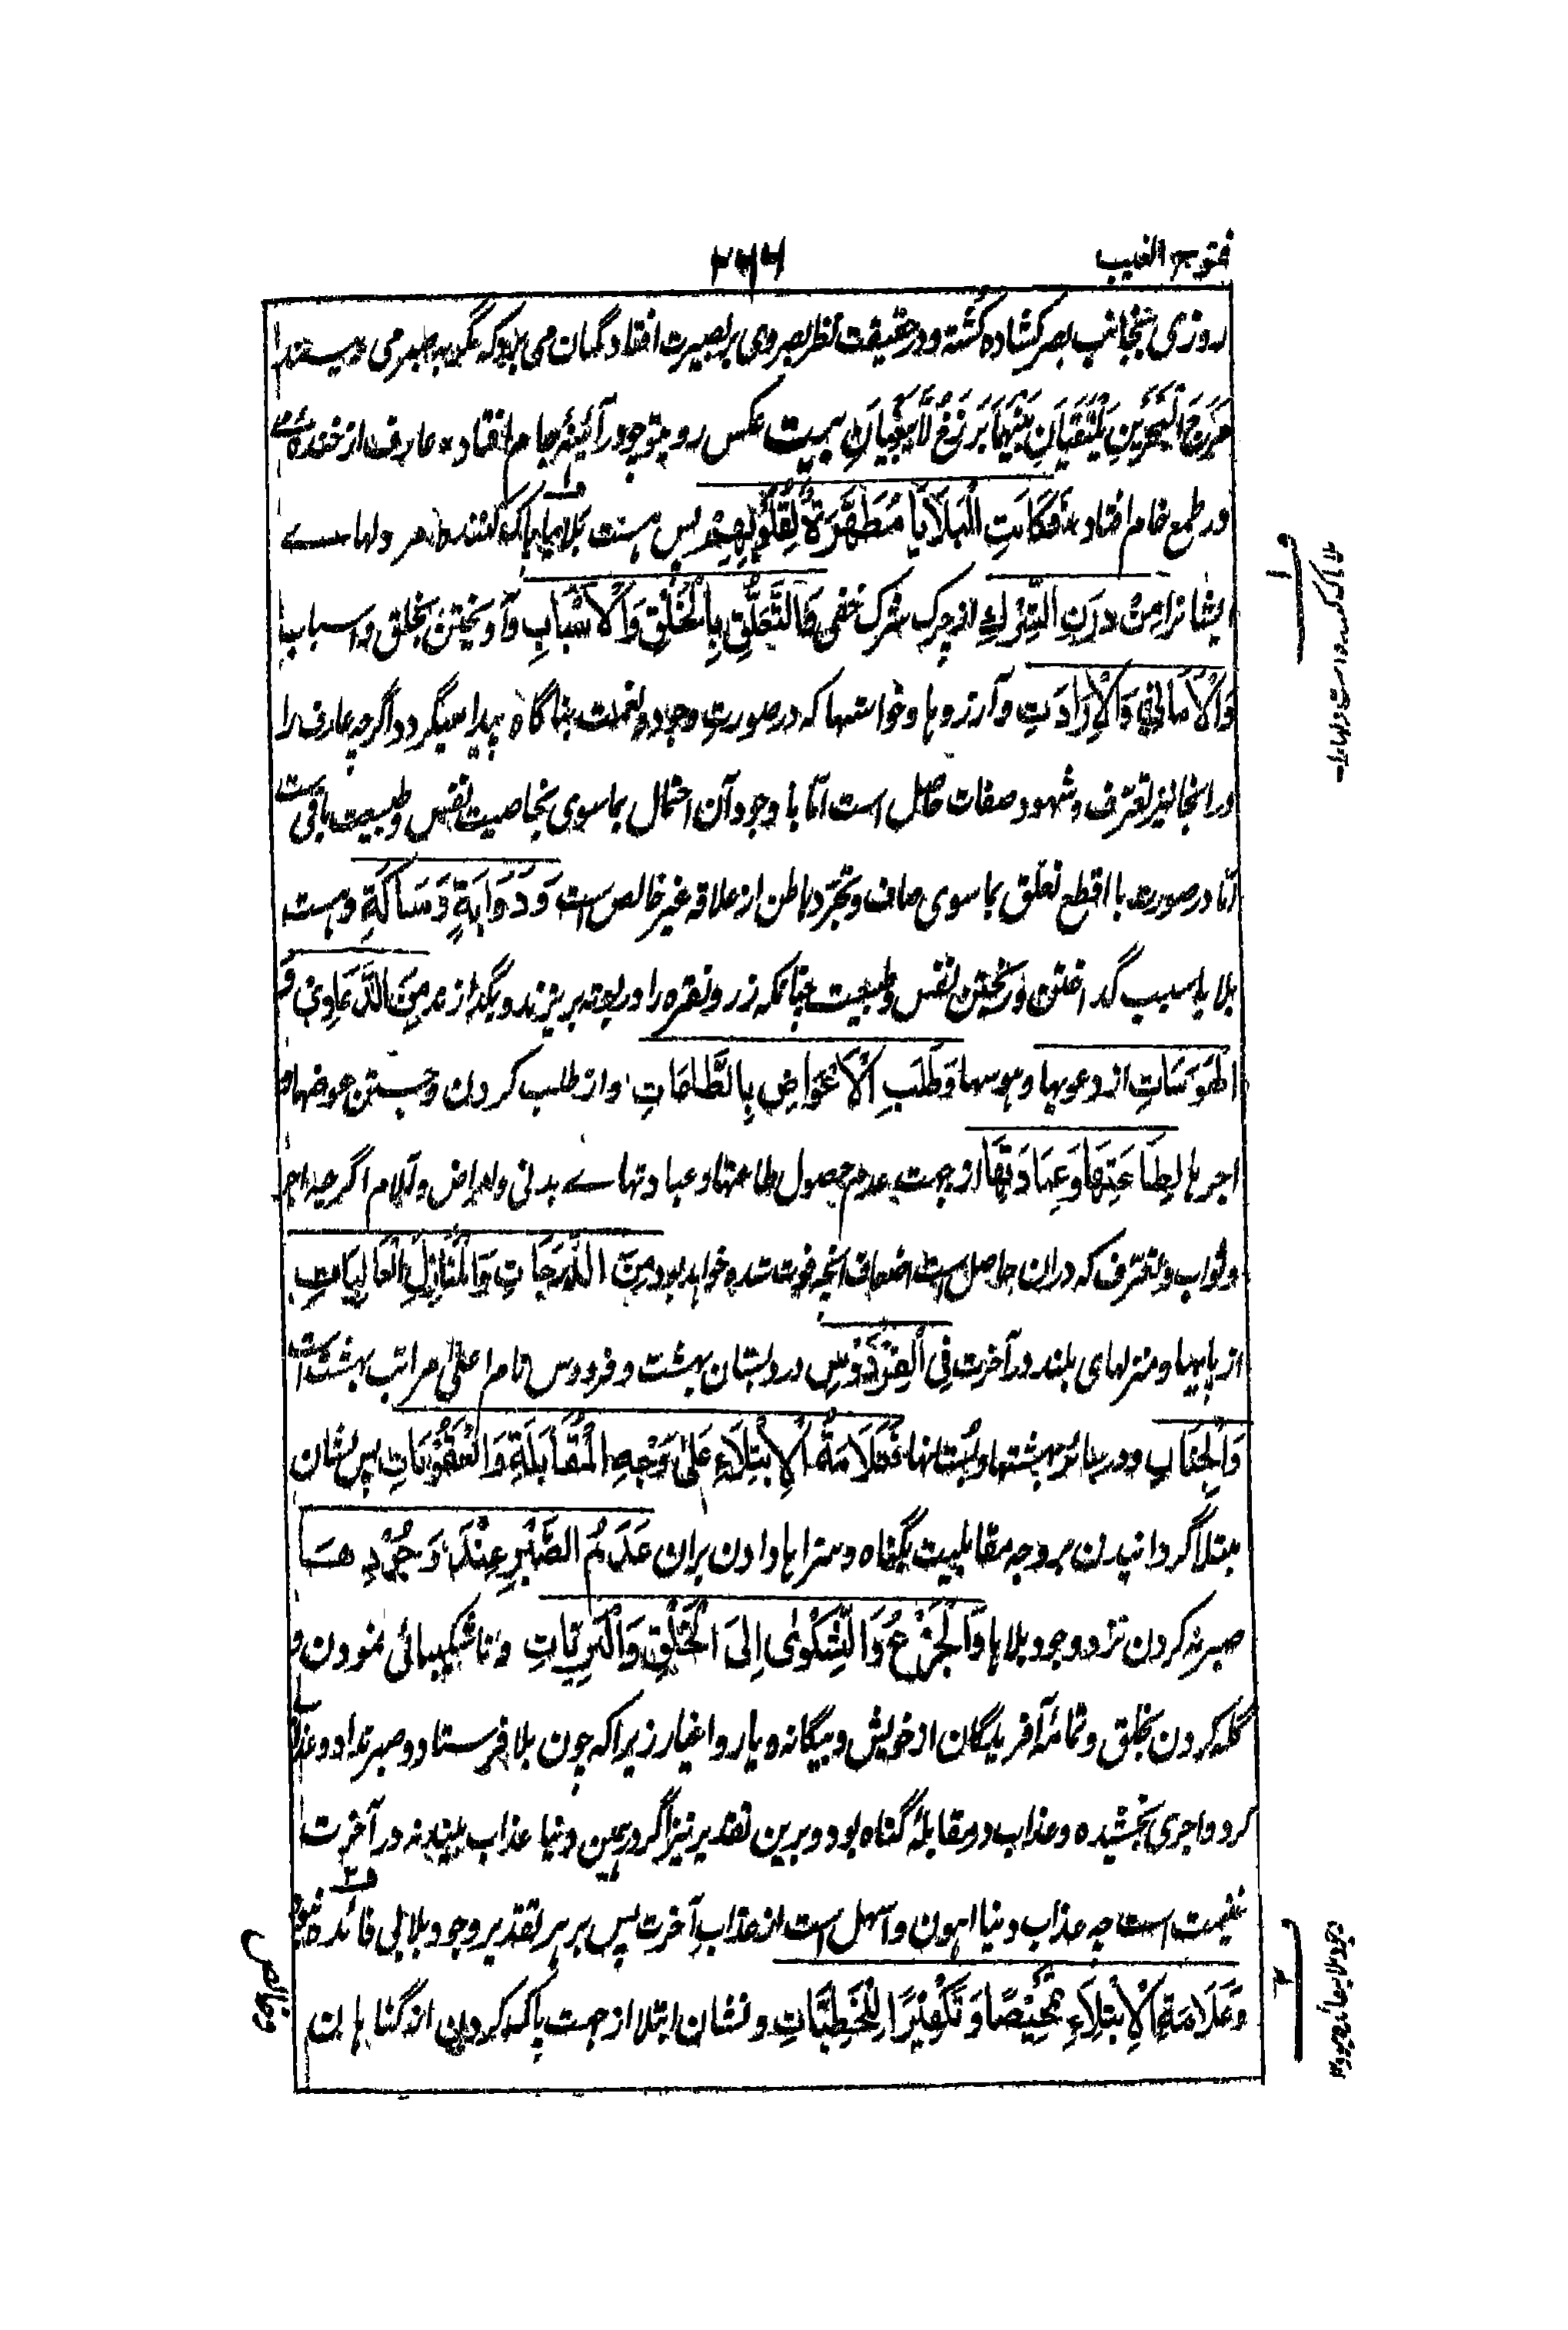 فتوح الغیب
۲۶۶
روزی بجانب بصر کشاده گشته و در حقیقت نظر بصر وی بر بصیرت افتاد گمان می برد که مگر به بصر می بیند
مَرَجَ الْبَحْرَيْنِ يَلْتَقِيَانِ بَيْنَهُمَا بَرْزَخٌ لَّا يَبْغِيَانِ بیت عکس روی تو چو در آئینهٔ جام افتاد ٭ عارف از خندهٔ مے
در طمع خام افتاد ٭ فَكَانَتِ الْبَلَايَا مُطَهِّرَةً لِقُلُوبِهِمْ پس هست بلاها پاک کننده مر دلهاے
ایشانرا مِنْ دَرَنِ الشِّرْكِ از چرک شرک خفی وَالتَّعَلُّقِ بِالْخَلْقِ وَالْأَسْبَابِ و آویختن بخلق و اسباب
وَالْأَمَانِي وَالْإِرَادَاتِ و آرزوها و خواستها که در صورت وجود و نعمت بناگاه پیدا میگردد اگرچه عارف را
در اینجا نیز تعرّف و شهود صفات حاصل است امّا با وجود آن احتمال بما سوی بخاصیت نفس و طبیعت باقی ست
امّا در صورت بلا قطع تعلق بما سوی صاف و تجرّد باطن از علاقه غیر خالص است وَذَوَّابَةً وَسَبَّاكَةً و هست
بلایا سبب گداختن و ریختن نفس و طبیعت چنانکه زر و نقره را در بوته بریزند و بگدازند مِنَ الدَّعَاوِي وَ
الْهَوَسَاتِ از دعویها و هوسها وَطَلَبِ الْأَعْوَاضِ بِالطَّاعَاتِ و از طلب کردن و جستن عوضها و
اجرها لِطَاعَتِهَا وَعِبَادَتِهَا از جهت عدم حصول طاعتها و عبادتهاے بدنی و امراض و آلام اگرچه اجر
و ثواب و تعرّف که دران حاصل است اضعاف آنچه فوت شده خواهد بود مِنَ الدَّرَجَاتِ وَالْمَنَازِلِ الْعَالِيَاتِ
از پایهها و منزلهای بلند در آخرت فِي الْفِرْدَوْسِ در بستان بهشت و فردوس نام اعلی مراتب بهشت است
وَالْجَنَّاتِ و در سائر بهشتها و بستانها فَعَلَامَةُ الْاِبْتِلَاءِ عَلَى وَجْهِ الْمُقَابَلَةِ وَالْعُقُوبَاتِ پس نشان
مبتلا گردانیدن بر وجه مقابلیت بگناه و سزاها دادن بران عَدَمُ الصَّبْرِ عِنْدَ وُجُودِهَا
صبر نه کردن نزد وجود بلاها وَالْجَزَعُ وَالشَّكْوَى إِلَى الْخَلْقِ وَالْبَرِيَّاتِ و ناشکیبائی نمودن و
گله کردن بخلق و تمامهٔ آفریدگان از خویش و بیگانه و یار و اغیار زیرا که چون بلا فرستاد و صبر نداد و عذاب
کرد و اجری نبخشیده و عذاب در مقابلهٔ گناه بود و برین تقدیر نیز اگر در همین دنیا عذاب ببیند نه در آخرت
غنیمت است چه عذاب دنیا اهون و اسهل است از عذاب آخرت پس بر هر تقدیر وجود بلا بی فائده نبود
وَعَلَامَةُ الْاِبْتِلَاءِ تَمْحِيْصًا وَتَكْفِيْرًا لِلْخَطِيَّاتِ و نشان ابتلا از جهت پاک کردن از گناهان